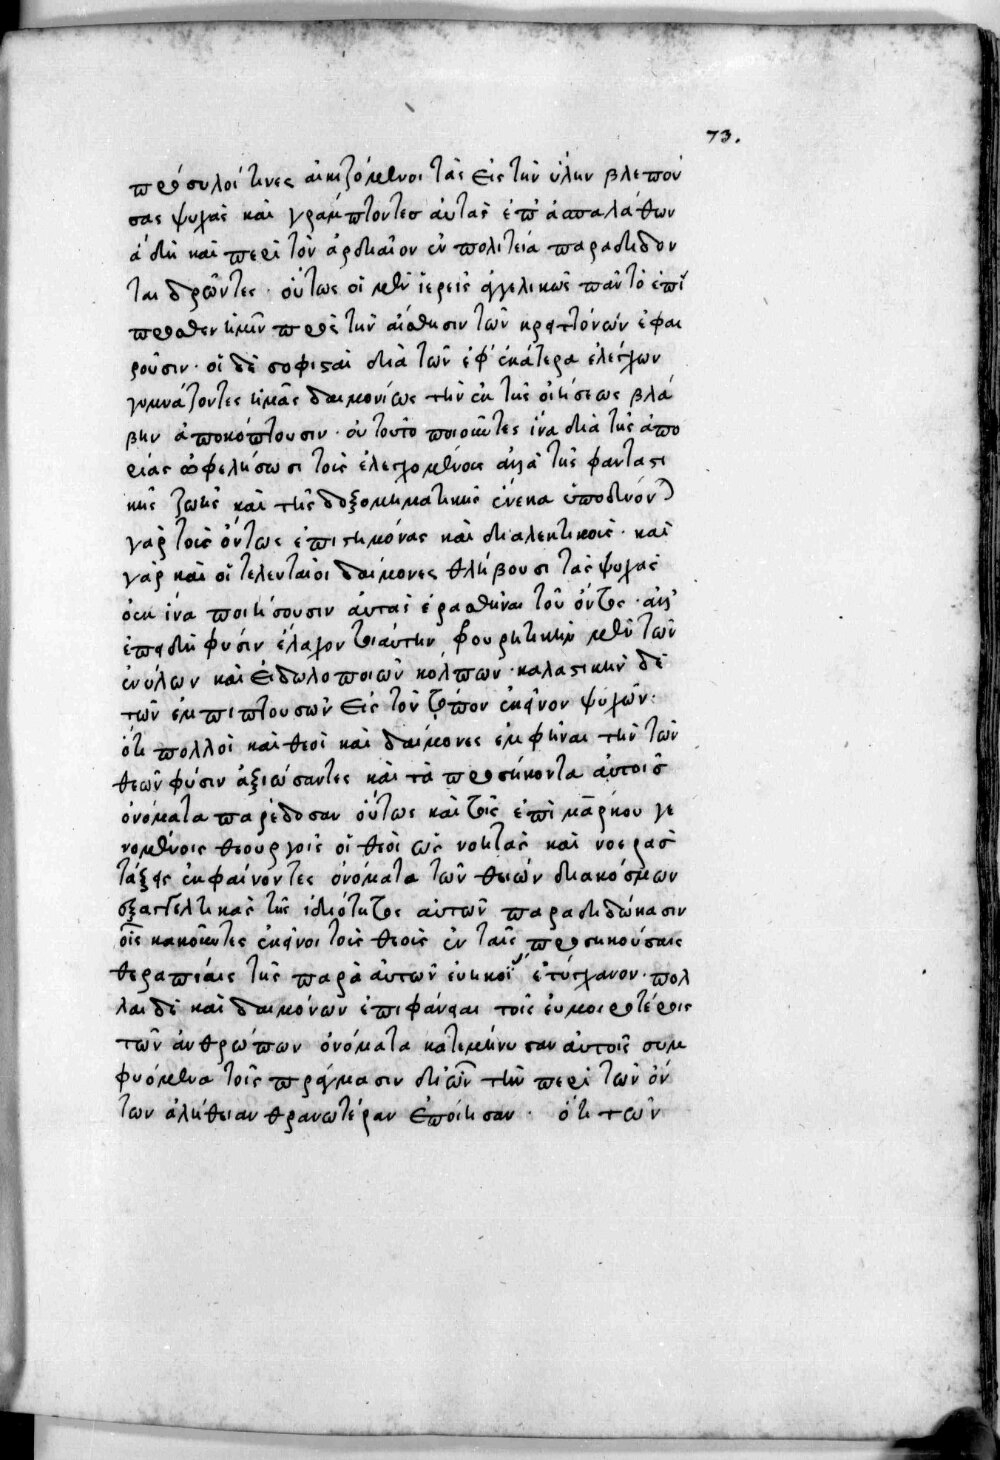 73.
πρόσυλοί τινες αἰκιζόμενοι τὰς εἰς τὴν ὕλην βλεπού
σας ψυχὰς καὶ γνάμπτοντες αὐτὰς ἐπ' ἀσπαλάθων
ἃ δὴ καὶ περὶ τὸν ἀρδιαῖον ἐν πολιτείᾳ παραδέδον
ται δρῶντες· οὕτως οἱ μὲν ἱερεῖς ἀγγελικῶς πᾶν τὸ ἐπί
προσθεν ἡμῖν πρὸς τὴν αἴσθησιν τῶν κρειττόνων ἀφαι
ροῦσιν· οἱ δὲ σοφισταὶ διὰ τῶν ἐφ' ἑκάτερα ἐλέγχων
γυμνάζοντες ἡμᾶς δαιμονίως τὴν ἐκ τῆς οἰήσεως βλά
βην ἀποκόπτουσιν· οὐ τοῦτο ποιοῦντες ἵνα διὰ τῆς ἀπο
ρίας ὠφελήσωσι τοὺς ἐλεγχομένους ἀλλὰ τῆς φανταστι
κῆς ζωῆς καὶ τῆς δοξομιμητικῆς ἕνεκα ὑποδύονται
γὰρ τοὺς ὄντως ἐπιστήμονας καὶ διαλεκτικούς· καὶ
γὰρ καὶ οἱ τελευταῖοι δαίμονες θλίβουσι τὰς ψυχὰς
οὐχ ἵνα ποιήσουσιν αὐτὰς ἐρασθῆναι τοῦ ὄντος· ἀλλ'
ἐπειδὴ φύσιν ἔλαχον τοιαύτην φρουρητικὴν μὲν τῶν
ἐνύλων καὶ εἰδωλοποιῶν κόλπων· κολαστικὴν δὲ
τῶν ἐμπιπτουσῶν εἰς τὸν τόπον ἐκεῖνον ψυχῶν·
ὅτι πολλοὶ καὶ θεοὶ καὶ δαίμονες ἐμφῆναι τὴν τῶν
θεῶν φύσιν ἀξιώσαντες καὶ τὰ προσήκοντα αὐτοῖς
ὀνόματα παρέδοσαν οὕτως καὶ τοῖς ἐπὶ μάρκου γε
νομένοις θεουργοῖς οἱ θεοὶ ὡς νοητὰς καὶ νοερὰς
τάξεις ἐκφαίνοντες ὀνόματα τῶν θείων διακόσμων
ἐξαγγελτικὰς τῆς ἰδιότητος αὐτῶν παραδεδώκασιν
οἷς καλοῦντες ἐκεῖνοι τοὺς θεοὺς ἐν ταῖς προσηκούσαις
θεραπείαις τῆς παρὰ αὐτῶν εὐηκοΐας ἐτύγχανον· πολ
λαὶ δὲ καὶ δαιμόνων ἐπιφάνειαι τοῖς εὐμοιροτέροις
τῶν ἀνθρώπων ὀνόματα κατεμήνυσαν αὐτοῖς συμ
φυόμενα τοῖς πράγμασιν δι' ὧν τὴν περὶ τῶν ὄν
των ἀλήθειαν τρανωτέραν ἐποίησαν· ὅτι τῶν